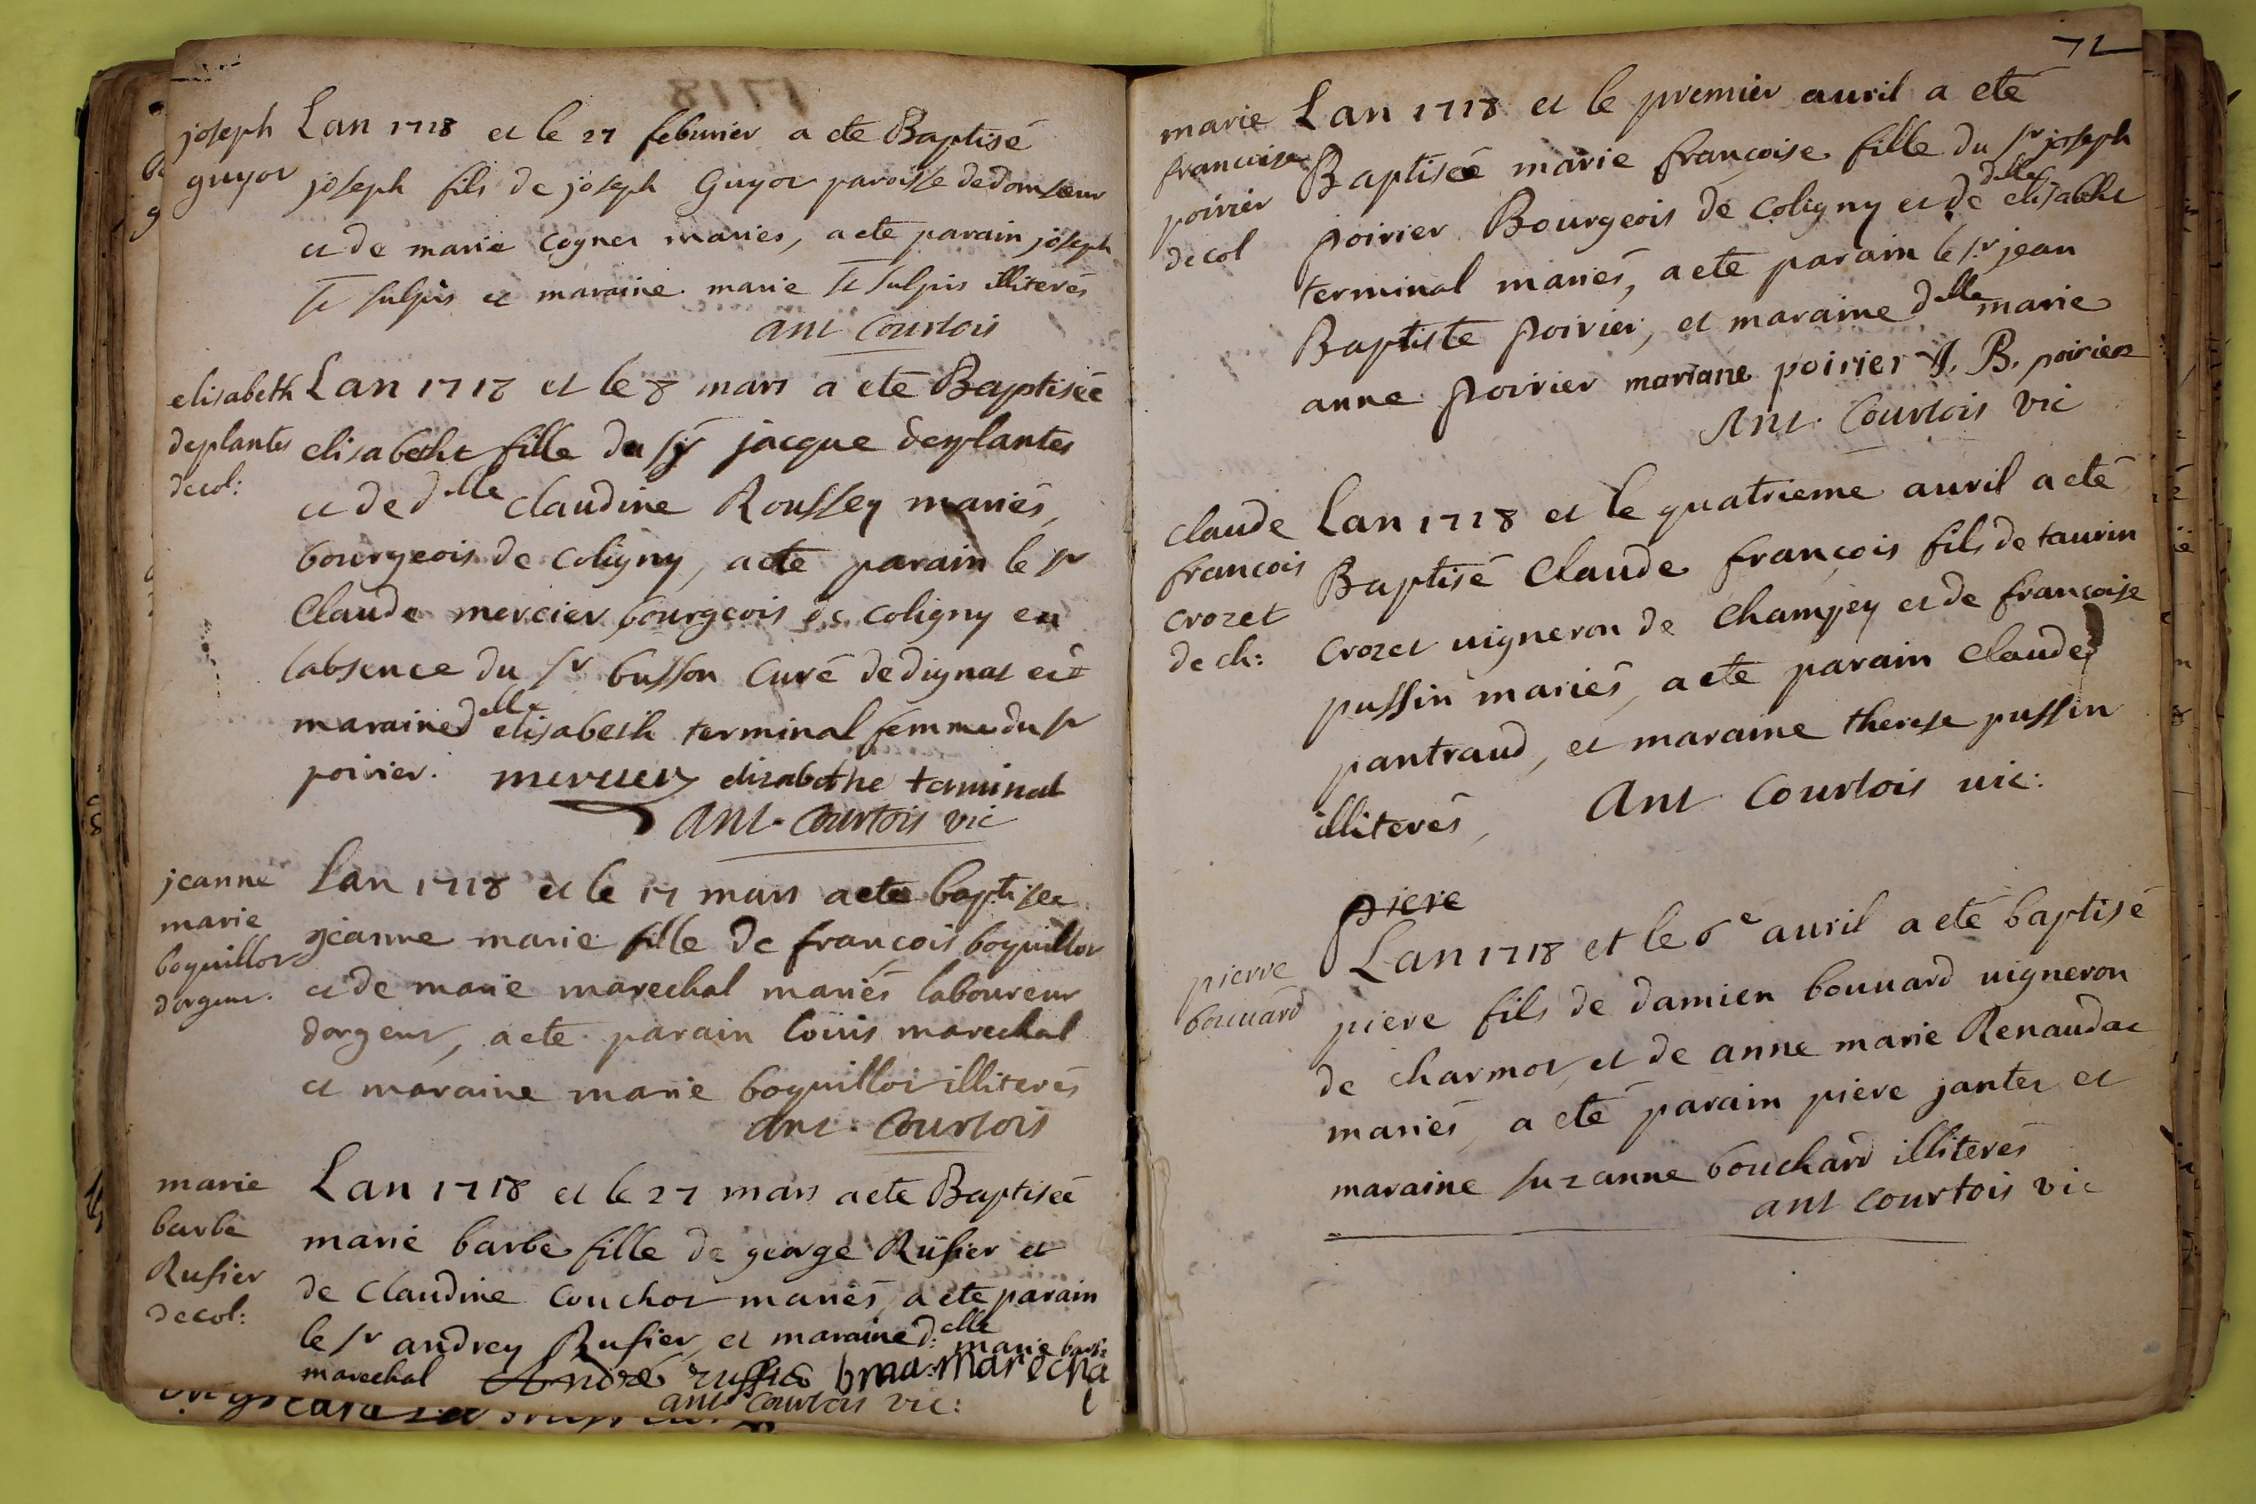 1718
joseph Lan 1718 et le 27 feburier a ete Baptisé
guyot joseph fils de joseph Guyot paroisse de domseur
et de marie cognet mariés, a ete parain joseph
St sulpis et maraine marie St sulpis illiterés
ant Courtois
elisabeth Lan 1718 et le 8 mars a ete Baptiseé
deplantes elisabetht fille du sr jacque deplantes
decol: et de delle claudine Roussey mariés,
bourgeois de coligny, a ete parain le sr
Claude mercier bourgeois de coligny en
labsence du sr busson curé de dignat et
maraine delle elisabeth terminal femme du sr
poirier. mercier elizabethe terminal
ant. Courtois vic
jeanne Lan 1718 et le 17 mars a ete baptisee
marie jeanne marie fille de francois boquillot
boquillot et de marie marechal mariés laboureur
dorgeut. dorgeut, a ete parain loüis marechal
et maraine marie boquillot illiterés
ant. Courtois
marie Lan 1718 et le 27 mars a ete Baptiseé
barbe marie barbe fille de george Rufier et
Rufier de claudine couchot mariés, a ete parain
decol: le sr andrey Rufier, et maraine d:elle marie barbe
marechal André ruffié marecha
l
ant Courtois vic:
72
marie Lan 1718 et le premier auril a eté
francoise Baptiseé marie françoise fille du sr joseph
poirier poirier Bourgeois de coligny et de delle elisabetht
decol terminal mariés, a ete parain le sr jean
Baptiste poirier, et maraine delle marie
anne poirier mariane poirier J. B. poirier
Ant. Courtois vic
claude Lan 1718 et le quatrieme auril a eté
francois Baptisé Claude françois fils de taurin
crozet crozet uigneron de Champey et de françoise
de ch: pussin mariés, a ete parain claude
pantraud, et maraine therese pussin
illiterés, Ant Courtois uic:
piere
Lan 1718 et le 6e auril a eté baptisé
pierre piere fils de damien bouuard uigneron
bouuard de charmot, et de anne marie Renaudat
mariés, a eté parain piere jantet et
maraine suzanne bouchard illiterés
ant courtois vic